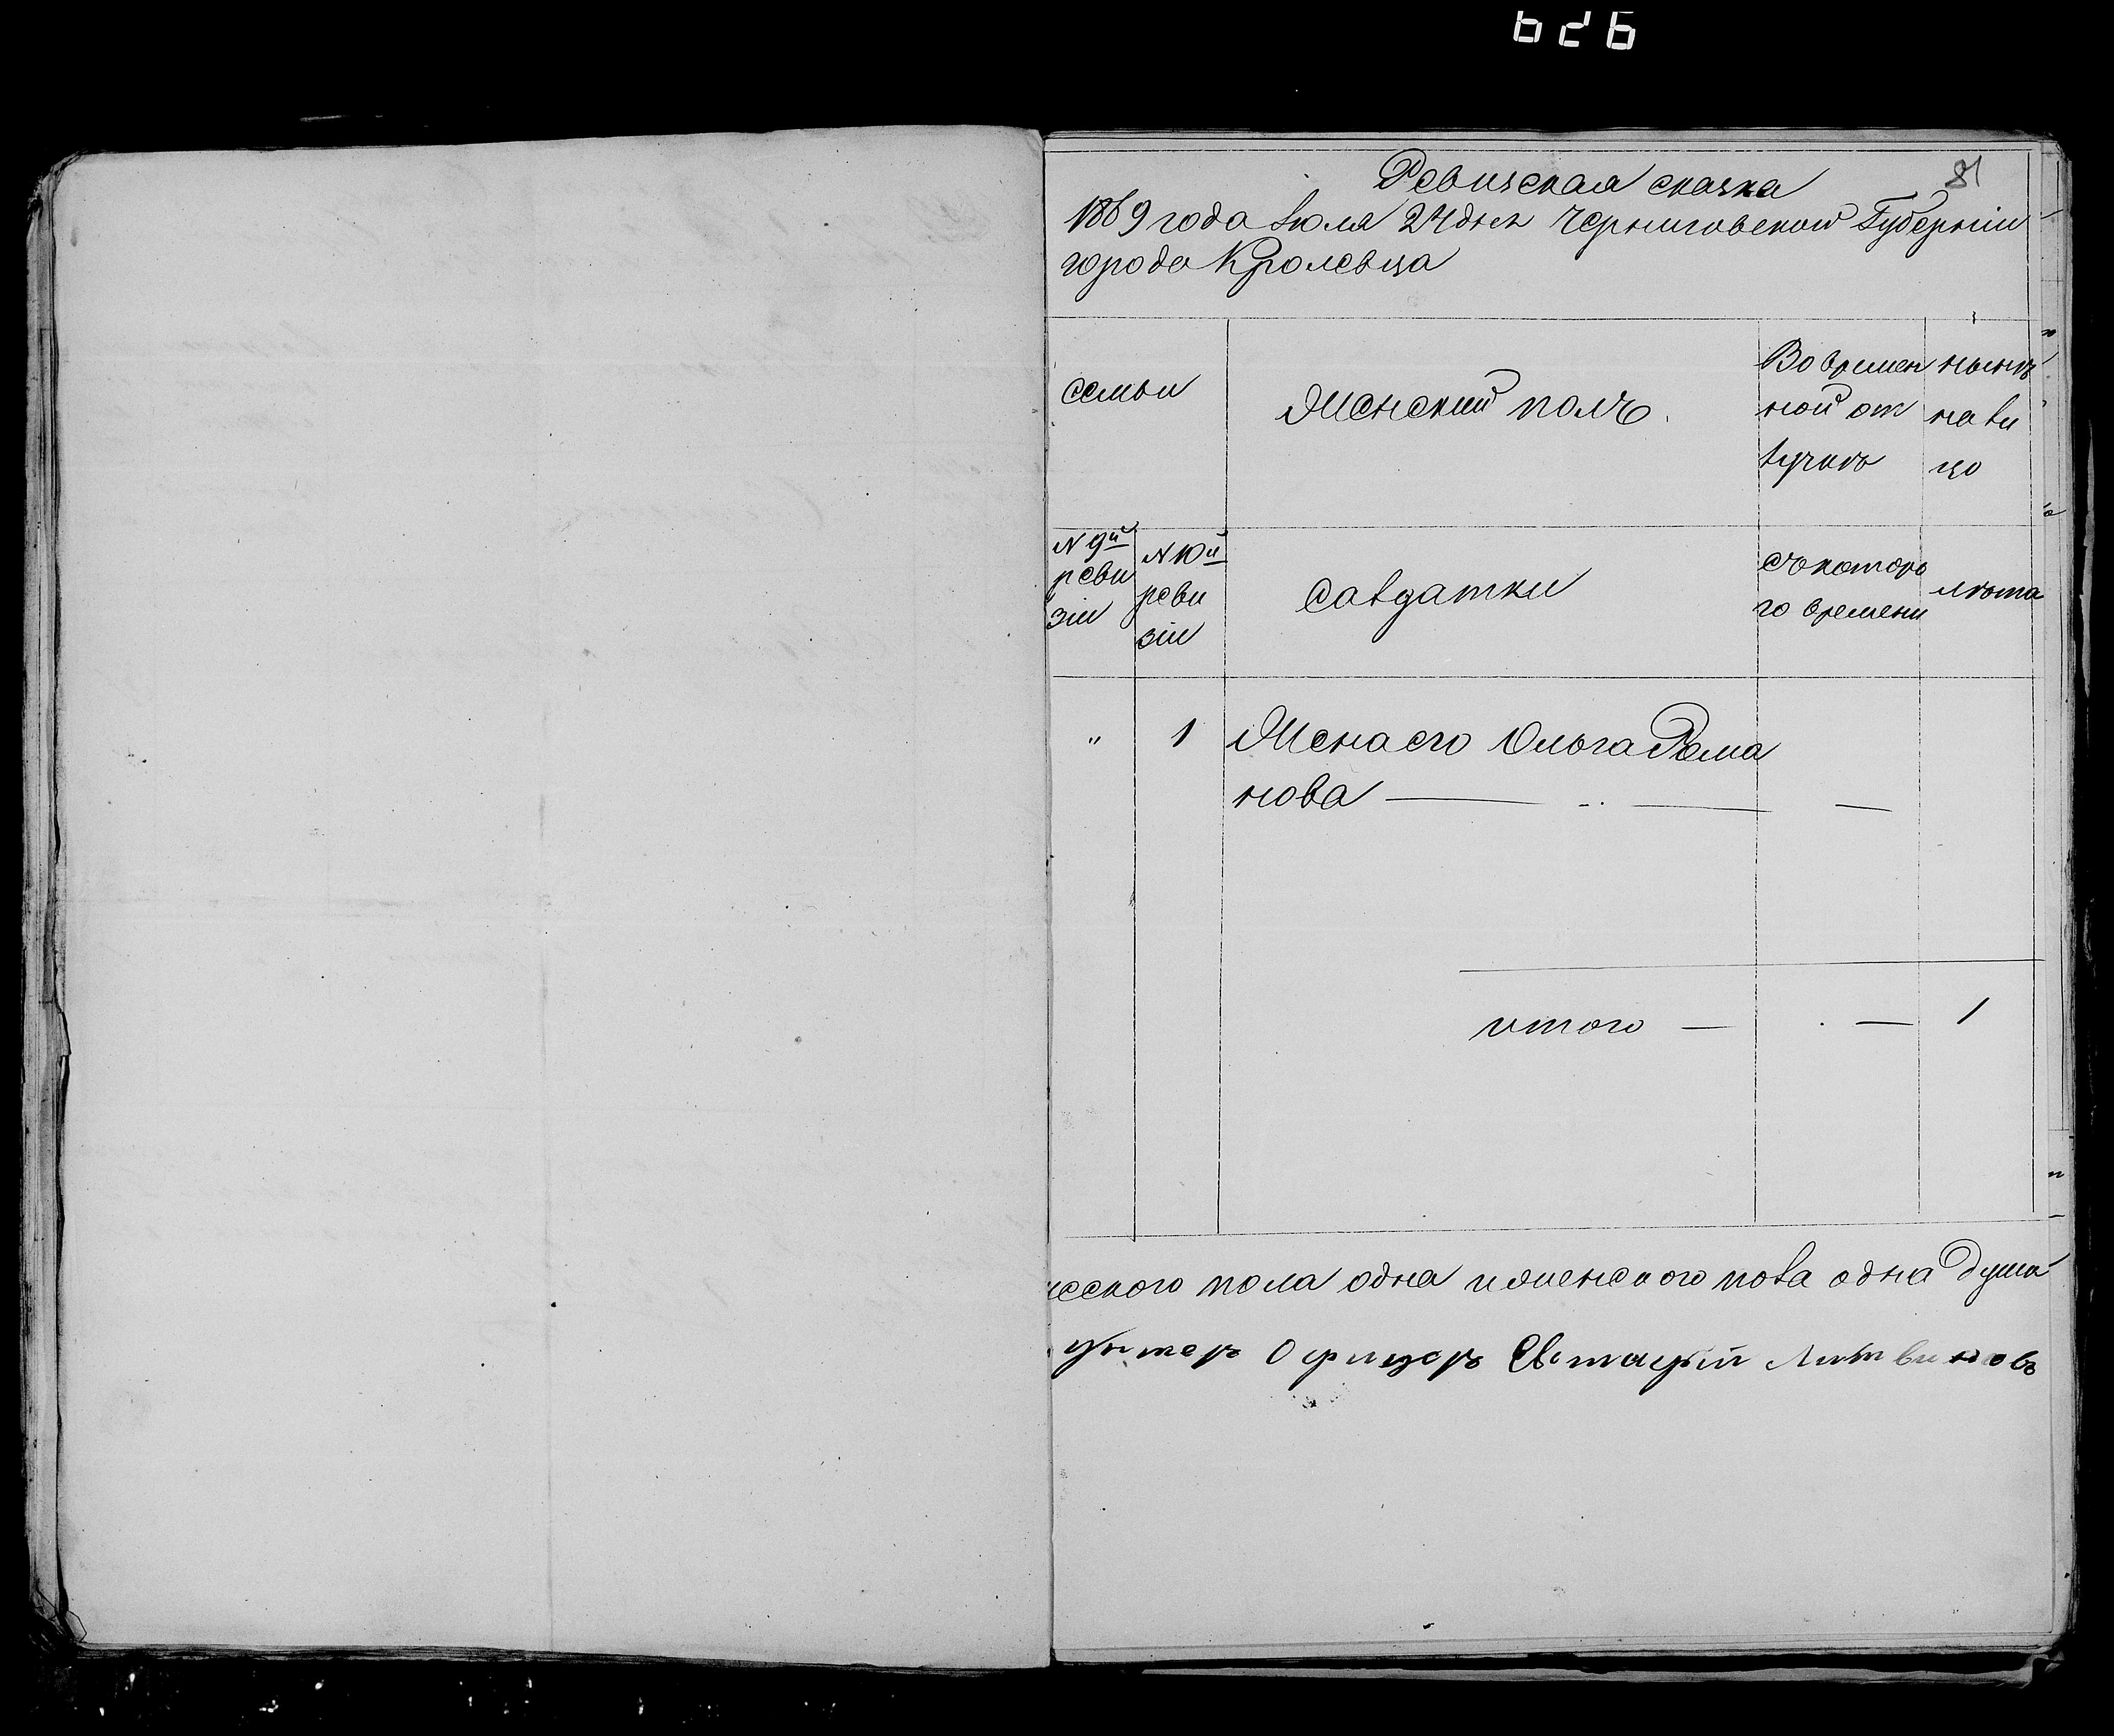 626
81
Ревизская сказка
1869 года Июля 24 дня Черниговской Губерніи
города Кролевца
семьи
Женский полъ.
Во времен
ной от
лучкѣ
нынѣ
на ли
цо
N 9й
реви
зіи
N 10й
реви
зіи
Салдатки
Съ которо
го времени
лѣта
" 1 Жена его Ольга Рома
нова — — —
итого — — 1
ческого пола одна и женского пола одна душа
унтеръ Офицеръ Литвиновъ